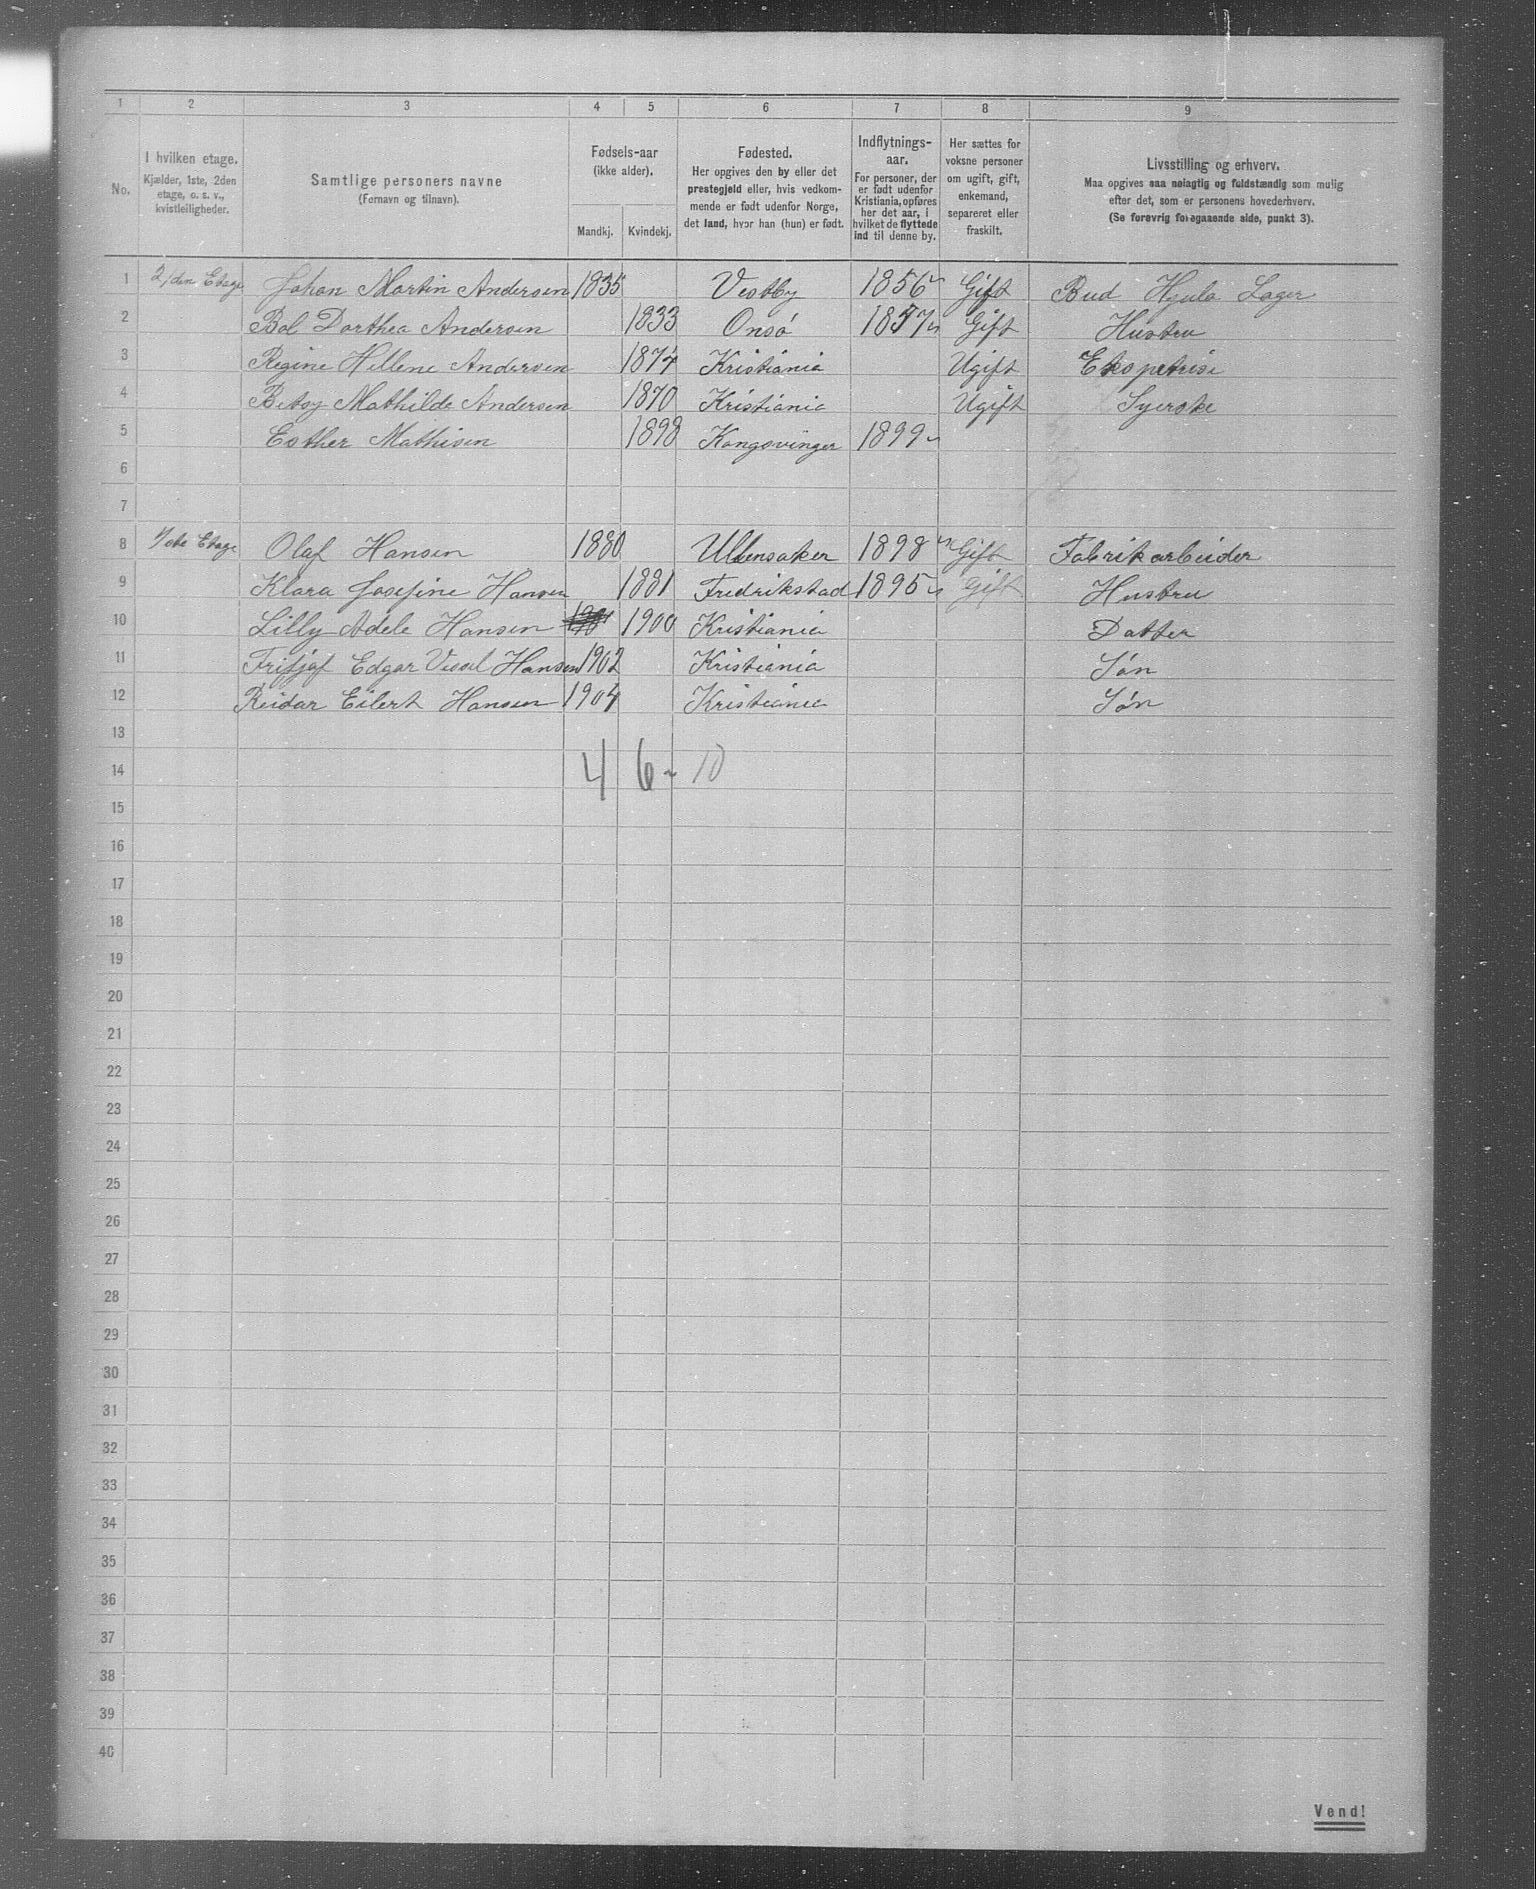 1 2 3 4 5 6 7 8 9
No.
I hvilken etage.
Kjælder, 1ste, 2den
etage, o. s. v.,
kvistleiligheder.
Samtlige personers navne
(Fornavn og tilnavn).
Fødsels-aar
(ikke alder).
Mandkj. Kvindekj.
Fødested.
Her opgives den by eller det
prestegjeld eller, hvis vedkom-
mende er født udenfor Norge,
det land, hvor han (hun) er født.
Indflytnings-
aar.
For personer, der
er født udenfor
Kristiania, opføres
her det aar, i
hvilket de flyttede
ind til denne by.
Her sættes for
voksne personer
om ugift, gift,
enkemand,
separeret eller
fraskilt.
Livsstilling og erhverv.
Maa opgives saa nøiagtig og fuldstændig som mulig
efter det, som er personens hovederhverv.
(Se forøvrig foregaaende side, punkt 3).
1 2/den Etage Johan Martin Andersen 1835 Vestby 1856 Gift Bud Hjula Lager
2 Bol Dorthea Andersen 1833 Onsö 1857 Gift Hustru
3 Regine Hellene Andersen 1874 Kristiania Ugift
4 Betsy Mathilde Andersen 1870 Kristiania Ugift Syerske
5 Esther Mathisen 1898 Kongsvinger 1899
6
7
8 1/ste Etage Olaf Hansen 1880 Ullensaker 1898 Gift Fabrikarbeider
9 Klara Josefine Hansen 1881 Fredrikstad 1895 Gift Hustru
10 Lilly Adele Hansen 1900 Kristiania Datter
11 Fritjof Edgar Hansen 1902 Kristiania Sön
12 Reidar Eilert Hansen 1904 Kristiania Sön
13
14 4 6 - 10
15
16
17
18
19
20
21
22
23
24
25
26
27
28
29
30
31
32
33
34
35
36
37
38
39
40
Vend!